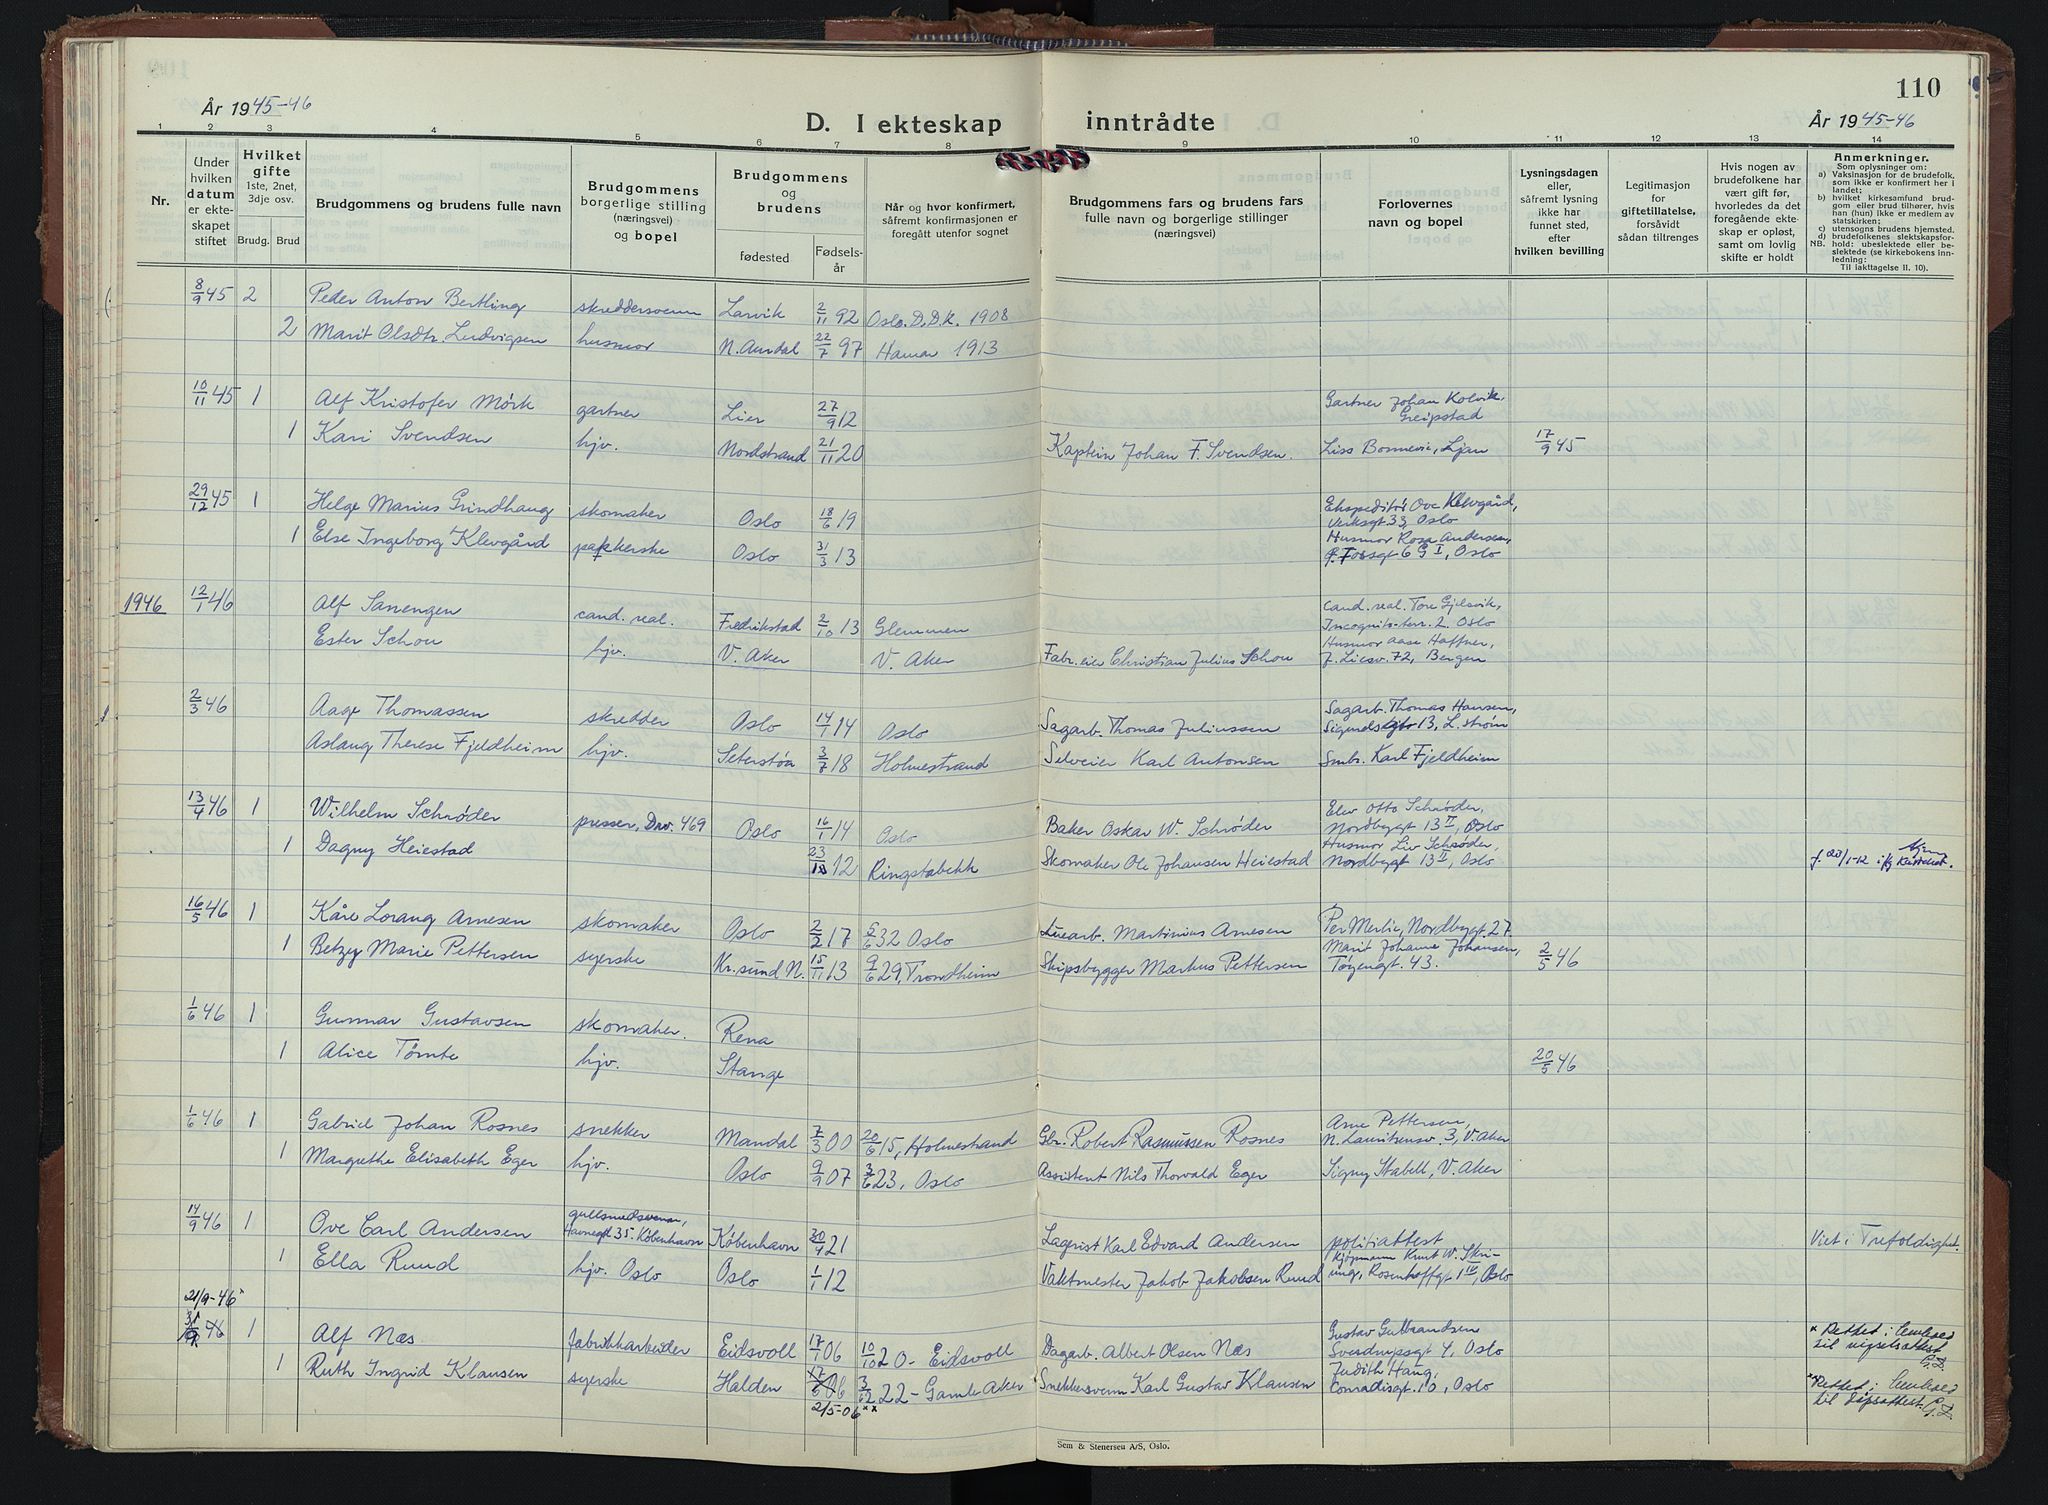 110
År 1945-46
D. I ekteskap inntrådte
År 1945-46
1 2 3 4 5 6 7 8 9 10 11 12 13 14
Nr.
Under hvilken datum er ekteskapet stiftet
Hvilket gifte 1ste, 2net, 3dje osv.
Brudg. Brud
Brudgommens og brudens fulle navn
Brudgommens borgerlige stilling (næringsvei) og bopel
Brudgommens og brudens
fødested
Fødsels-år
Når og hvor konfirmert, såfremt konfirmasjonen er foregått utenfor sognet
Brudgommens fars og brudens fars fulle navn og borgerlige stillinger (næringsvei)
Forlovernes navn og bopel
Lysningsdagen eller, såfremt lysning ikke har funnet sted, efter hvilken bevilling
Legitimasjon for giftetillatelse, forsåvidt sådan tiltrenges
Hvis nogen av brudefolkene har vært gift før, hvorledes da det foregående ekteskap er opløst, samt om lovlig skifte er holdt
Anmerkninger.
Som oplysninger om:
a) Vaksinasjon for de brudefolk, som ikke er konfirmert her i landet;
b) hvilket kirkesamfund brudgom eller brud tilhører, hvis han (hun) ikke er medlem av statskirken;
c) utensogns brudens hjemsted.
d) brudefolkenes slektskapsforhold: ubeslektede eller beslektede (se kirkebokens innledning:
NB.
Til iakttagelse II. 10).
8/9 45 2 Peder Anton Bertling skreddersvenn Larvik 2/11 92 Oslo. D.D.K. 1908
2 Marit Olsdtr. Ludvigsen husmor N. Aurdal 22/7 97 Hamar 1913
10/11 45 1 Alf Kristofer Mörk gartner Lier 27/9 12 Gartner Johan Kolvik, Greipstad
1 Kari Svendsen hjv. Nordstrand 21/11 20 Kaptein Johan F. Svendsen. Liss Bonnevie, Ljan 17/9 45
29/12 45 1 Helge Marius Grindhaug skomaker Oslo 18/6 19 Ekspeditör Ove Klevgård, Verksgt. 33, Oslo
1 Else Ingeborg Klevgård pakkerske Oslo 31/3 13 Husmor Rosa Andersen, 6 G I, Oslo
1946
12/1 46 Alf Sanengen cand. real. Fredrikstad 2/10 13 Glemmen Cand. real. Tore Gjelsvik, Incognito terr. 2. Oslo
Ester Schou hjv. V. Aker V. Aker Fabr.eier Christian Julius Schou Husmor Aase Haffner, J. Liesv. 72, Bergen
2/3 46 Aage Thomassen skredder Oslo 14/1 14 Oslo Sagarb. Thomas Juliussen Sagarb. Thomas Hansen, 13, L. strøm
Aslaug Therese Fjeldheim hjv. Seterstøa 3/7 18 Holmestrand Selveier Karl Antonsen Smbr. Karl Fjeldheim
13/4 46 1 Wilhelm Schrøder presser, Drv. 469 Oslo 16/1 14 Oslo Baker Oskar W. Schrøder Elev Otto Schrøder, Nordbygt 13 II, Oslo
1 Dagny Heiestad 23/ 12 Ringstabekk Skomaker Ole Johansen Heiestad Husmor Liv Schrøder, Nordbygt 13 II, Oslo
16/5 46 1 Kåre Lorang Arnesen skomaker Oslo 2/2 17 5/6 32 Oslo Linearb. Martinius Arnesen Per Merlie, Nordbygt. 27.
1 Betzy Marie Pettersen syerske Kr.sund N. 15/11 13 9/6 29, Trondheim Skipsbygger Markus Pettersen Marit Johanne Johansen, Tøyengt. 43. 2/5 46
1/6 46 1 Gunnar Gustavsen skomaker. Rena
1 Alice Tømte hjv. Stange 20/5 46
1/6 46 1 Gabriel Johan Rosnes snekker Mandal 7/3 00 20/6 15, Holmestrand Gbr. Robert Rasmussen Rosnes Arne Pettersen, N. Lauritzensv. 3, V. Aker
1 Margrethe Elisabeth Eger hjv. Oslo 9/9 07 3/6 23, Oslo Assistent Nils Thorvald Eger Signy Stabell, V. Aker
14/9 46 1 Ove Carl Andersen gullsmedsvenn, Havnegt 35. København København 30/4 21 Lagerist Karl Edvard Andersen politiattest Viet i Trefoldighet.
1 Ella Ruud hjv. Oslo Oslo 1/1 12 Vaktmester Jakob Jakobsen Ruud Kjøpmann Knut W. Skriung, Rosenhoffgt 1 IV, Oslo
21/9-46*
1 Alf Næs fabrikkarbeider Eidsvoll 17/1 06 10/10 20 - Eidsvoll Dagarb. Albert Olsen Næs Gustav Gulbrandsen Sverdrupsgt 4, Oslo * Rettet i til vigselsattest G.L.
1 Ruth Ingrid Klausen syerske Halden 17/6 06 3/12 22 - Gamle Aker Snekkersvenn Karl Gustav Klausen Judith Haug, Conradisgt. 10, Oslo ** Rettet i til dåpsattest. G.L.
2/5-06**
Sem & Stenersen A/S, Oslo.